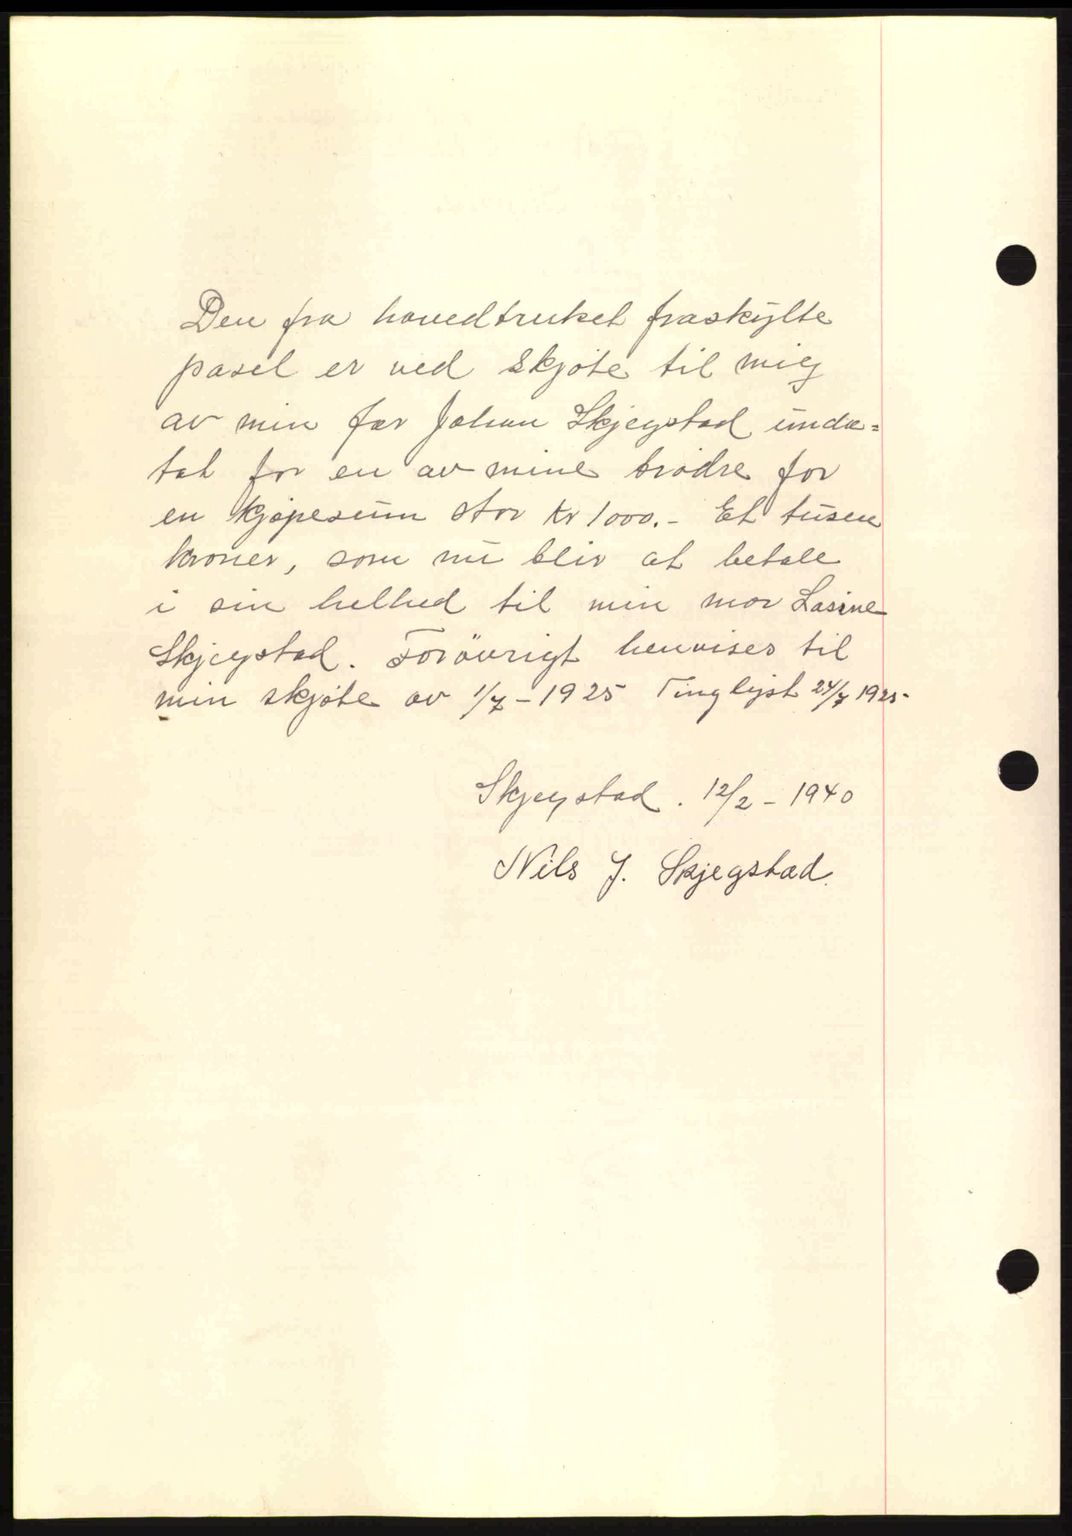 Den fra hovedbruket fraskylte
pasel er ved Skjøte til mig
av min far Johan Skjegstad unda=
tat for en av mine brødre for
en kjøpesum stor Kr 1000.- Et tusen
kroner, som nu blir at betale
i sin helhed til min mor Lasine
Skjegstad. Forøvrigt henvises til
min skjøte av 1/7-1925 Tinglyst 24/7 1925-
Skjegstad. 12/2-1940
Nils J. Skjegstad.